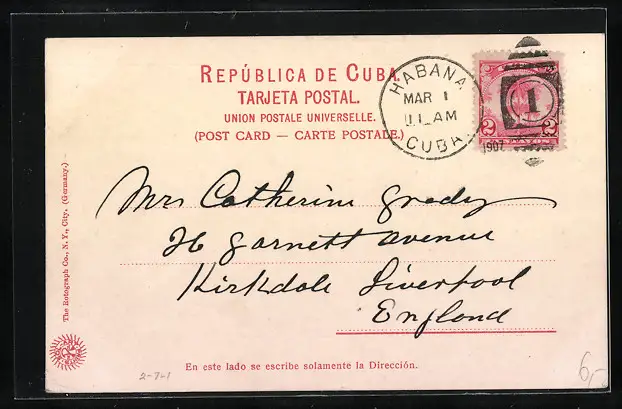 REPÚBLICA DE CUBA.
TARJETA POSTAL.
UNION POSTALE UNIVERSELLE.
(POST CARD — CARTE POSTALE.)
HABANA
MAR 1
11 AM
CUBA
1907
1
2 2
CENTAVOS
Mrs Catherine Grady
26 Garnett Avenue
Kirkdale Liverpool
England
The Rotograph Co., N. Y., City. (Germany.)
En este lado se escribe solamente la Dirección.
2-7-1